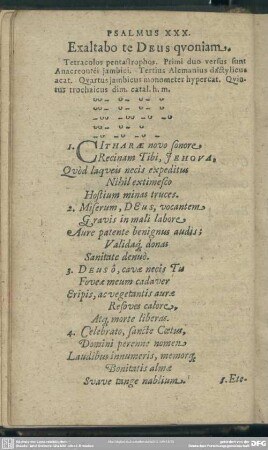 PSALMUS XXX.
Exaltabo te DEUS qvoniam.
Tetracolos pentastrophos. Primi duo versus sunt
Anacreontei jambici. Tertius Alemanius dactylicus
acat. Qvartus jambicus monometer hypercat. Qvin-
tus trochaicus dim. catal. h. m.
1. CITHARÆ novo sonore
Recinam Tibi, JEHOVA,
Qvòd laqveis necis expeditus
Nihil extimesco
Hostium minas truces.
2. Miserum, DEus, vocantem
Gravis in mali labore
Aure patente benignus audis;
Validaq́; donas
Sanitate denuò.
3. DEUS ô, cavæ necis Tu
Foveæ meum cadaver
Eripis, ac vegetantis auræ
Refoves calore,
Atq; morte liberas.
4. Celebrato, sancte Cœtus,
Domini perenne nomen
Laudibus innumeris, memorq;
Bonitatis almæ
Svave tange nablium.
5. Ete-